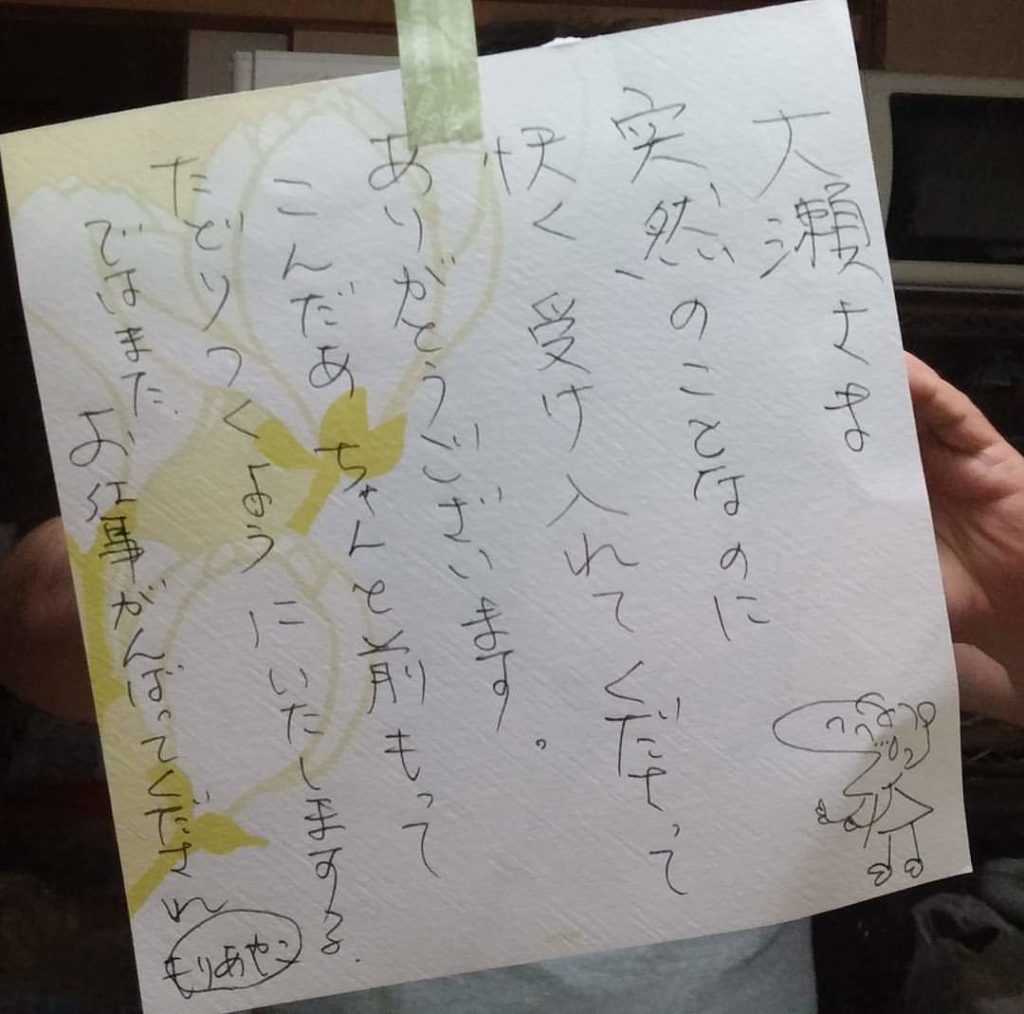 大瀬さま
突然のことなのに
快く受け入れてくださって
ありがとうございます。
こんだあちゃんと前もって
たどりつくようにいたしまする.
ではまた.お仕事がんばってくだされ
もりあやこ